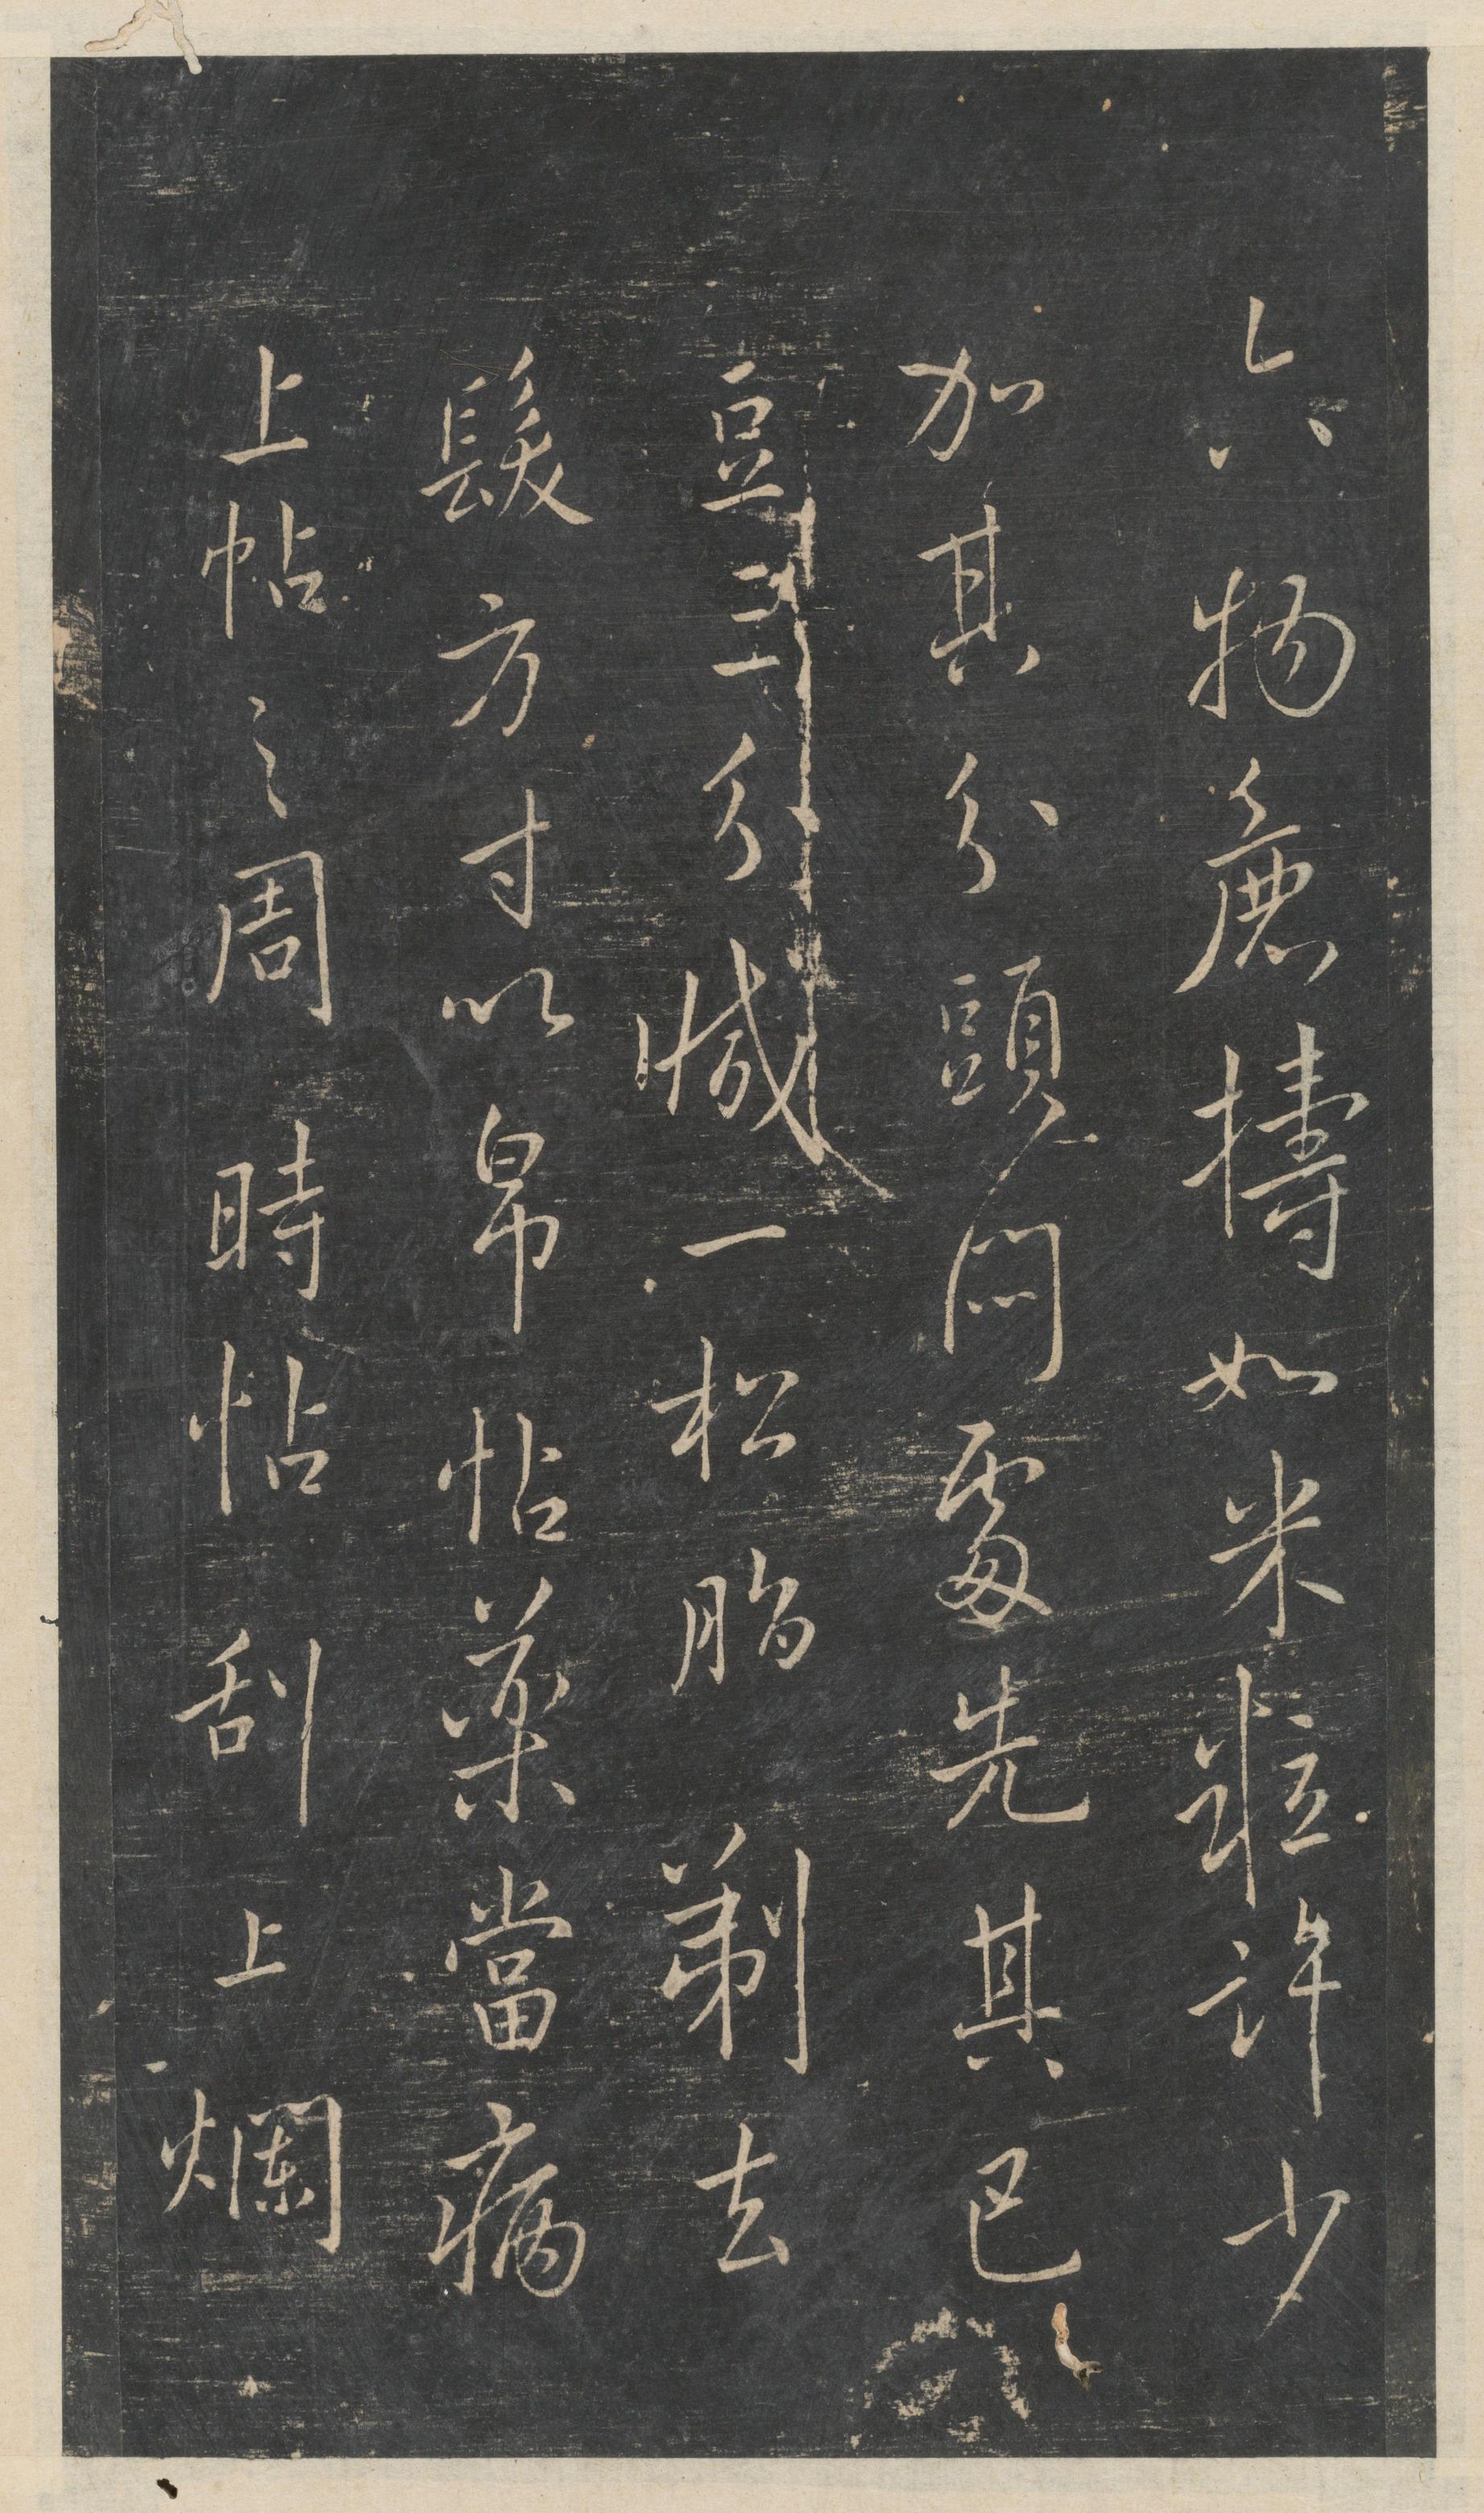 六物麁擣如米粒許少
加其分頭悶處先其巴
豆三分減一松脂剃去
髮方寸以帛帖藥當病
上帖之周時帖刮上爛